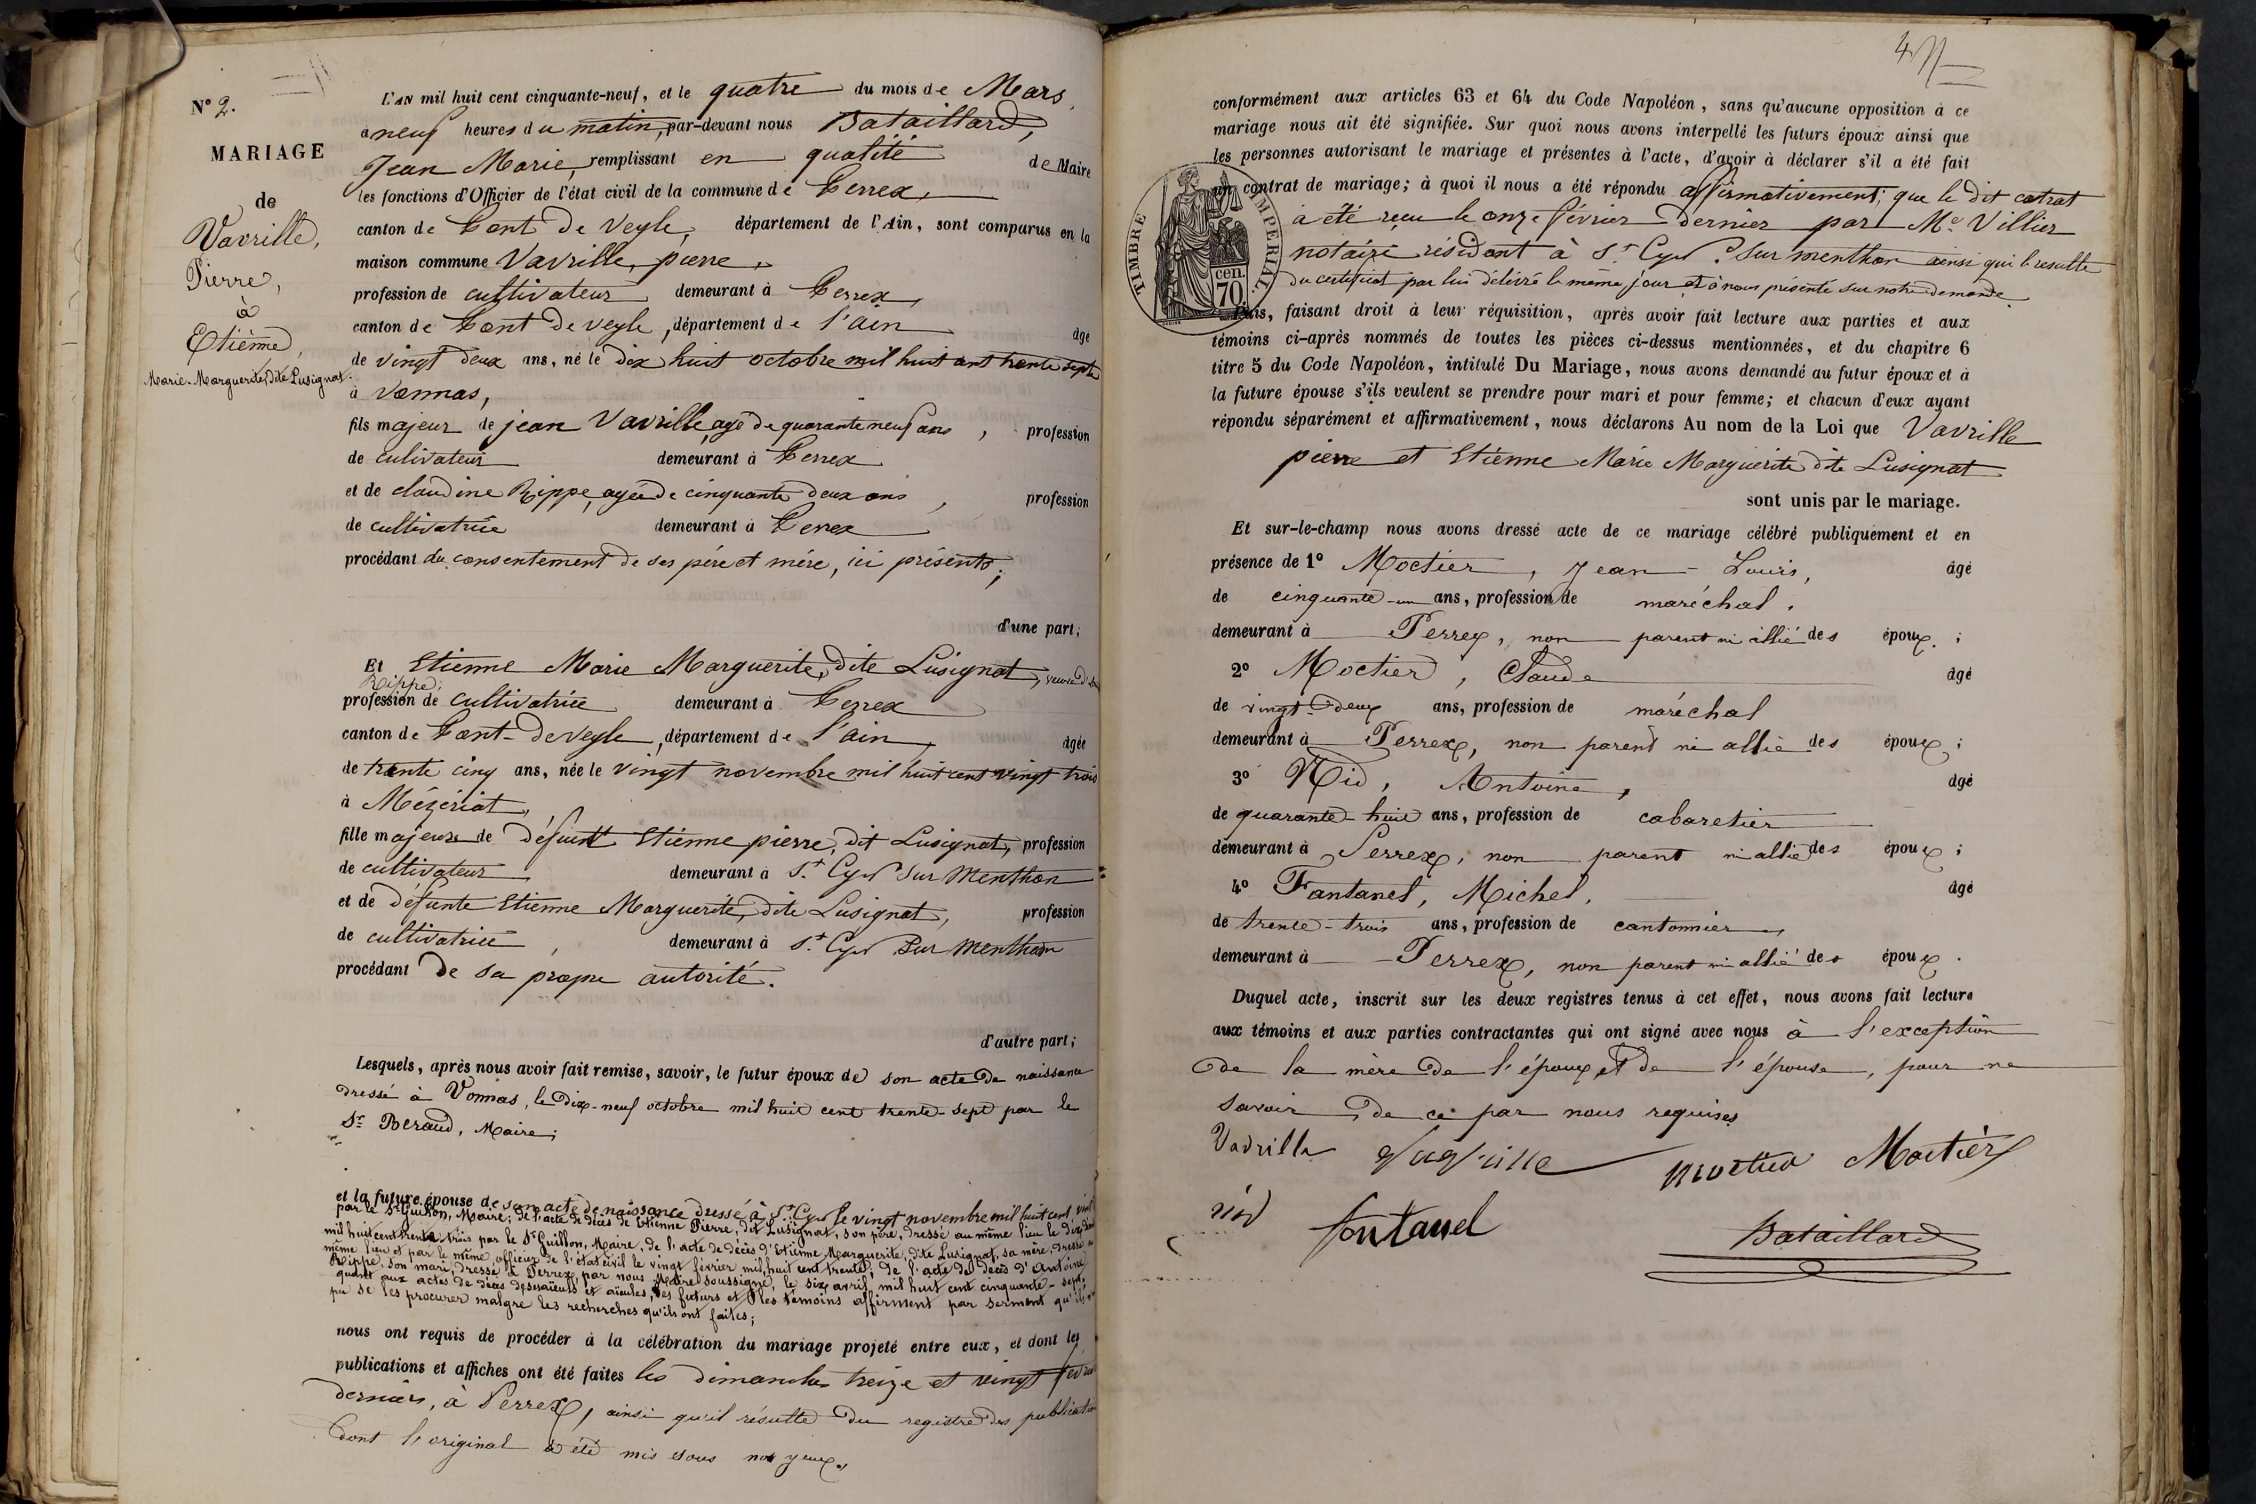 N° 2.
MARIAGE
de
Vavrille,
Pierre,
à
Etienne,
Marie-Marguerite, dite Lusignat.
L'AN mil huit cent cinquante-neuf, et le quatre du mois de Mars,
à neuf heures du matin, par-devant nous Bataillard,
Jean Marie, remplissant en qualité de Maire
les fonctions d'Officier de l'état civil de la commune de Perrex,
canton de Pont de Veyle, département de l'Ain, sont comparus en la
maison commune Vavrille, pierre,
profession de cultivateur demeurant à Perrex,
canton de Pont de veyle, département de l'ain âgé
de vingt deux ans, né le dix huit octobre mil huit cent trente sept
à Vonnas,
fils majeur de jean Vavrille, agé de quarante neuf ans, profession
de culivateur demeurant à Perrex
et de claudine Rippe, agée de cinquante deux ans, profession
de cultivatrice demeurant à Perrex
procédant du consentement de ses père et mère, ici présents;
d'une part;
Et Etienne Marie Marguerite, dite Lusignat, veuve d'
Rippe;
profession de cultivatrice demeurant à Perrex
canton de Pont-de veyle, département de l'ain, âgée
de trente cinq ans, née le vingt novembre mil huit cent vingt trois
à Mézériat,
fille majeure de défunt Etienne pierre, dit Lusignat, profession
de cultivateur demeurant à St. Cyr sur Menthon
et de défunte Etienne Marguerite, dite Lusignat, profession
de cultivatrice, demeurant à St. Cyr sur Menthon
procédant de sa propre autorité.
d'autre part;
Lesquels, après nous avoir fait remise, savoir, le futur époux de son acte de naissance
dressé à Vonnas, le dix-neuf octobre mil huit cent trente-sept par le
Sr. Beraud, Maire;
et la future épouse de son acte de naissance dressé à St. Cyr le vingt novembre mil huit cent vint
par le Sr Guillon, Maire; de l'acte de décès de Etienne Pierre, dit Lusignat, son père, dressé au même lieu le dix
mil huit cent trente trois par le Sr Guillon, Maire, de l'acte de décès d'Etienne Marguerite, dite Lusignat, sa mère, dressé au
même lieu et par le même officier de l'état civil le vingt février mil huit cent trente; de l'acte de décès d'Antoine
Rippe, son mari, dressé à Perrex, par nous Maire soussigné, le six avril mil huit cent cinquante-sept;
quant aux actes de décès des aïeuls et aïeules, les futurs et les témoins affirment par serment qu'ils n'ont
pu se les procurer malgré les recherches qu'ils ont faites;
nous ont requis de procéder à la célébration du mariage projeté entre eux, et dont les
publications et affiches ont été faites les dimanches treize et vingt février
derniers, à Perrex, ainsi qu'il résulte du registre des publications
dont l'original a été mis sous nos yeux.
4
conformément aux articles 63 et 64 du Code Napoléon, sans qu'aucune opposition à ce
mariage nous ait été signifiée. Sur quoi nous avons interpellé les futurs époux ainsi que
les personnes autorisant le mariage et présentes à l'acte, d'avoir à déclarer s'il a été fait
un contrat de mariage; à quoi il nous a été répondu affirmativement; que le dit catrat
a été reçu le onze février dernier par Me. Villier
notaire résidant à St. Cyr sur menthon ainsi qui le resulte
du certificat par lui délivré le même jour et à nous présenté sur notre demande.
TIMBRE IMPERIAL
70 cen.
Puis, faisant droit à leur réquisition, après avoir fait lecture aux parties et aux
témoins ci-après nommés de toutes les pièces ci-dessus mentionnées, et du chapitre 6
titre 5 du Code Napoléon, intitulé Du Mariage, nous avons demandé au futur époux et à
la future épouse s'ils veulent se prendre pour mari et pour femme; et chacun d'eux ayant
répondu séparément et affirmativement, nous déclarons Au nom de la Loi que Vavrille
pierre et Etienne Marie Marguerite dite Lusignat
sont unis par le mariage.
Et sur-le-champ nous avons dressé acte de ce mariage célébré publiquement et en
présence de 1° Moctier, Jean-Louis, âgé
de cinquante-un ans, profession de maréchal,
demeurant à Perrex, non parent ni allié des époux;
2° Moctier, Claude âgé
de vingt-deux ans, profession de maréchal
demeurant à Perrex, non parent ni allié des époux;
3° Nid, Antoine, âgé
de quarante-huit ans, profession de cabaretier
demeurant à Perrex, non parent ni allié des époux;
4° Fantanel, Michel, âgé
de trente-trois ans, profession de cantonnier,
demeurant à Perrex, non parent ni allié des époux.
Duquel acte, inscrit sur les deux registres tenus à cet effet, nous avons fait lecture
aux témoins et aux parties contractantes qui ont signé avec nous à l'exception
de la mère de l'époux et de l'épouse, pour ne
savoir de ce par nous requises
Vavrille Vavrille Moctier Moctier
nid fontanel Bataillard